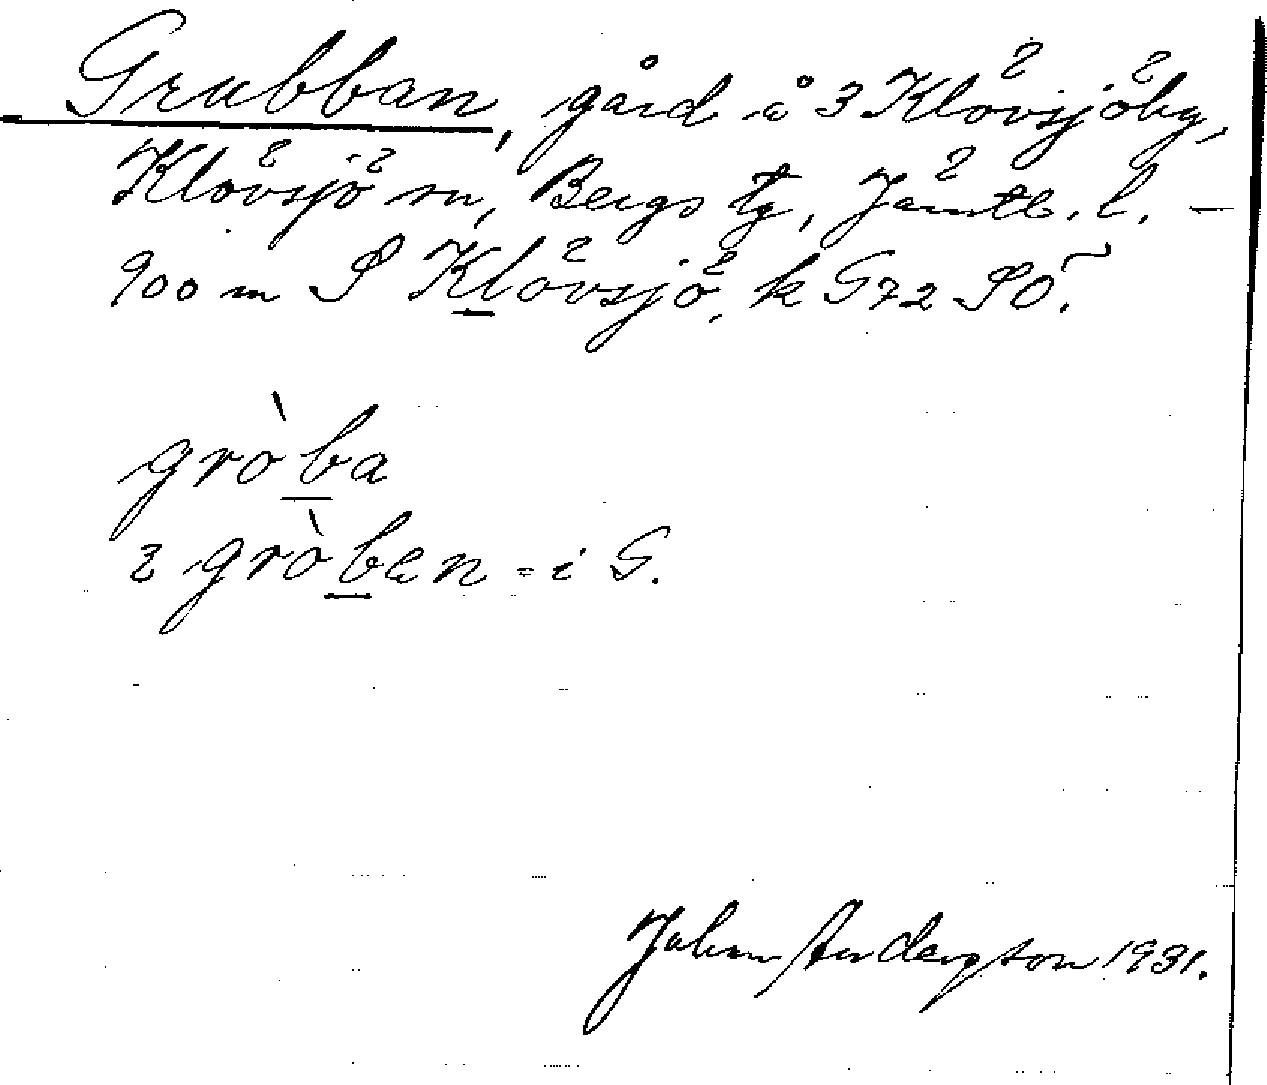 Grubban, gård å 3 Klövsjöby,
Klövsjö sn, Bergs tg, Jämtl. l. –
900 m S Klövsjö, k G72 SO.
gròba
2 gròben = i G.
Johan Andersson 1931.